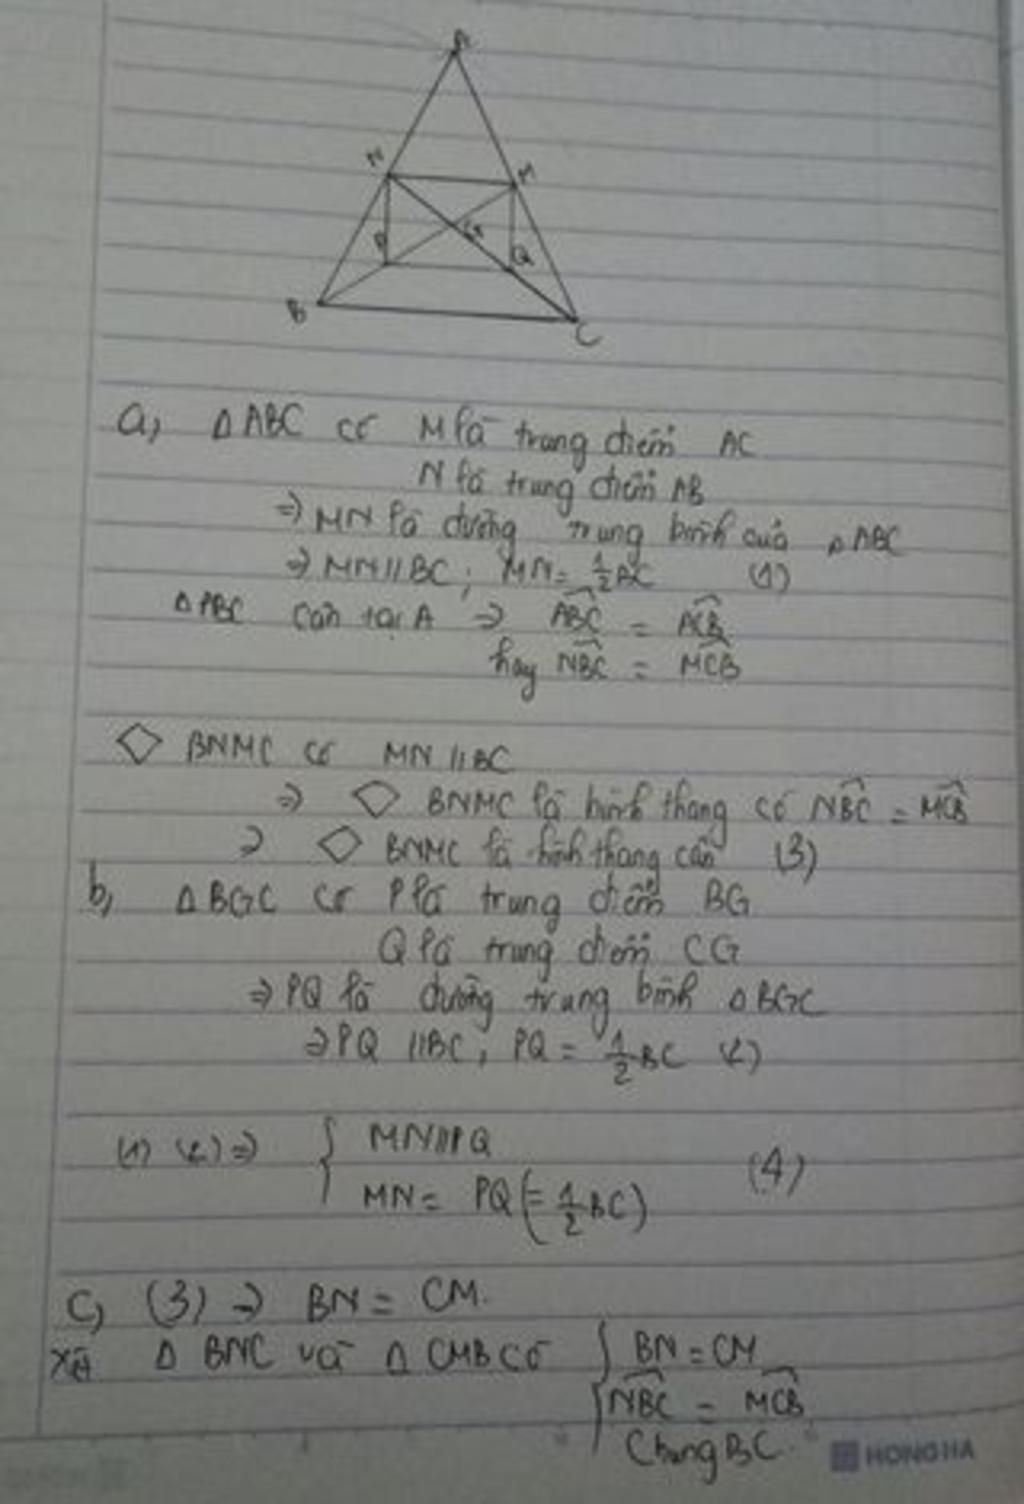 A
N M
G
P Q
B
C
a, Δ ABC có M là trung điểm AC
N là trung điểm AB
=> MN là đường trung bình của Δ ABC
=> MN // BC ; MN = 1/2 BC (1)
Δ ABC cân tại A => ABC = ACB
hay NBC = MCB
◇ BNMC có MN // BC
=> ◇ BNMC là hình thang có NBC = MCB
=> ◇ BNMC là hình thang cân (3)
b, Δ BGC có P là trung điểm BG
Q là trung điểm CG
=> PQ là đường trung bình Δ BGC
=> PQ // BC ; PQ = 1/2 BC (2)
(1) (2) => { MN // PQ
MN = PQ (= 1/2 BC) (4)
c, (3) => BN = CM.
xét Δ BNC và Δ CMB có { BN = CM
NBC = MCB
Chung BC.
HONG HA